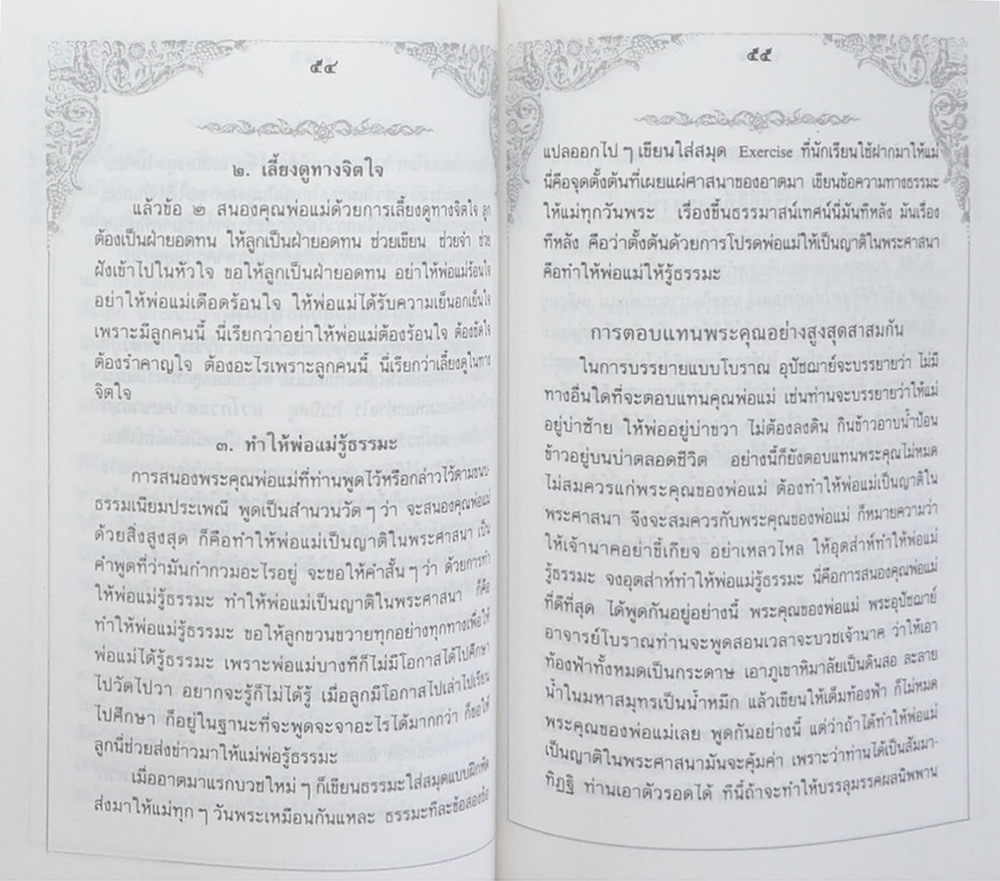 ๕๔
๒. เลี้ยงดูทางจิตใจ
แล้วข้อ ๒ สนองคุณพ่อแม่ด้วยการเลี้ยงดูทางจิตใจ ลูก
ต้องเป็นฝ่ายอดทน ให้ลูกเป็นฝ่ายอดทน ช่วยเขียน ช่วยจำ ช่วย
ฝังเข้าไปในหัวใจ ขอให้ลูกเป็นฝ่ายอดทน อย่าให้พ่อแม่ร้อนใจ
อย่าให้พ่อแม่เดือดร้อนใจ ให้พ่อแม่ได้รับความเย็นอกเย็นใจ
เพราะมีลูกคนนี้ นี่เรียกว่าอย่าให้พ่อแม่ต้องร้อนใจ ต้องขัดใจ
ต้องรำคาญใจ ต้องอะไรเพราะลูกคนนี้ นี่เรียกว่าเลี้ยงดูในทาง
จิตใจ
๓. ทำให้พ่อแม่รู้ธรรมะ
การสนองพระคุณพ่อแม่ที่ท่านพูดไว้หรือกล่าวไว้ตามขนบ-
ธรรมเนียมประเพณี พูดเป็นสำนวนวัดๆ ว่า จะสนองคุณพ่อแม่
ด้วยสิ่งสูงสุด ก็คือทำให้พ่อแม่เป็นญาติในพระศาสนา เป็น
คำพูดที่ว่ามันกำกวมอะไรอยู่ จะขอให้คำสั้นๆ ว่า ด้วยการทำ
ให้พ่อแม่รู้ธรรมะ ทำให้พ่อแม่เป็นญาติในพระศาสนา ก็คือ
ทำให้พ่อแม่รู้ธรรมะ ขอให้ลูกขวนขวายทุกอย่างทุกทางเพื่อให้
พ่อแม่ได้รู้ธรรมะ เพราะพ่อแม่บางทีก็ไม่มีโอกาสได้ไปศึกษา
ไปวัดไปวา อยากจะรู้ก็ไม่ได้รู้ เมื่อลูกมีโอกาสไปเล่าไปเรียน
ไปศึกษา ก็อยู่ในฐานะที่จะพูดจะจาอะไรได้มากกว่า ก็ขอให้
ลูกนี่ช่วยส่งข่าวมาให้แม่พ่อรู้ธรรมะ
เมื่ออาตมาแรกบวชใหม่ๆ ก็เขียนธรรมะใส่สมุดแบบฝึกหัด
ส่งมาให้แม่ทุกๆ วันพระเหมือนกันแหละ ธรรมะทีละข้อสองข้อ
๕๕
แปลออกไปๆ เขียนใส่สมุด Exercise ที่นักเรียนใช้ฝากมาให้แม่
นี่คือจุดตั้งต้นที่เผยแผ่ศาสนาของอาตมา เขียนข้อความทางธรรมะ
ให้แม่ทุกวันพระ เรื่องขึ้นธรรมาสน์เทศน์นี่มันทีหลัง มันเรื่อง
ทีหลัง คือว่าตั้งต้นด้วยการโปรดพ่อแม่ให้เป็นญาติในพระศาสนา
คือทำให้พ่อแม่ให้รู้ธรรมะ
การตอบแทนพระคุณอย่างสูงสุดสาสมกัน
ในการบรรยายแบบโบราณ อุปัชฌาย์จะบรรยายว่า ไม่มี
ทางอื่นใดที่จะตอบแทนคุณพ่อแม่ เช่นท่านจะบรรยายว่าให้แม่
อยู่บ่าซ้าย ให้พ่ออยู่บ่าขวา ไม่ต้องลงดิน กินข้าวอาบน้ำป้อน
ข้าวอยู่บนบ่าตลอดชีวิต อย่างนี้ก็ยังตอบแทนพระคุณไม่หมด
ไม่สมควรแก่พระคุณของพ่อแม่ ต้องทำให้พ่อแม่เป็นญาติใน
พระศาสนา จึงจะสมควรกับพระคุณของพ่อแม่ ก็หมายความว่า
ให้เจ้านาคอย่าขี้เกียจ อย่าเหลวไหล ให้อุตส่าห์ทำให้พ่อแม่
รู้ธรรมะ จงอุตส่าห์ทำให้พ่อแม่รู้ธรรมะ นี่คือการสนองคุณพ่อแม่
ที่ดีที่สุด ได้พูดกันอยู่อย่างนี้ พระคุณของพ่อแม่ พระอุปัชฌาย์
อาจารย์โบราณท่านจะพูดสอนเวลาจะบวชเจ้านาค ว่าให้เอา
ท้องฟ้าทั้งหมดเป็นกระดาษ เอาภูเขาหิมาลัยเป็นดินสอ ละลาย
น้ำในมหาสมุทรเป็นน้ำหมึก แล้วเขียนให้เต็มท้องฟ้า ก็ไม่หมด
พระคุณของพ่อแม่เลย พูดกันอย่างนี้ แต่ว่าถ้าได้ทำให้พ่อแม่
เป็นญาติในพระศาสนามันจะคุ้มค่า เพราะว่าท่านได้เป็นสัมมา-
ทิฏฐิ ท่านเอาตัวรอดได้ ทีนี้ถ้าจะทำให้บรรลุมรรคผลนิพพาน